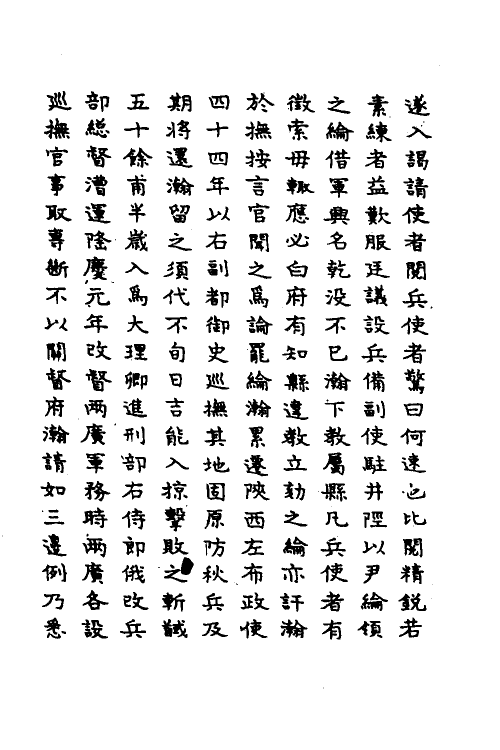 遂入謁請使者閱兵使者驚曰何速也比閱精銳若
素練者益歎服廷議設兵備副使駐井陘以尹綸領
之綸借軍興名乾没不已瀚下教屬縣凡兵使者有
徵索毋輙應必白府有知縣違教立劾之綸亦訐瀚
於撫按言官聞之爲論罷綸瀚累遷陝西左布政使
四十四年以右副都御史巡撫其地固原防秋兵及
期將還瀚留之須代不旬日吉能入掠擊敗之斬馘
五十餘甫半歲入爲大理卿進刑部右侍郎俄改兵
部総督漕運隆慶元年改督兩廣軍務時兩廣各設
巡撫官事取專斷不以關督府瀚請如三邊例乃悉